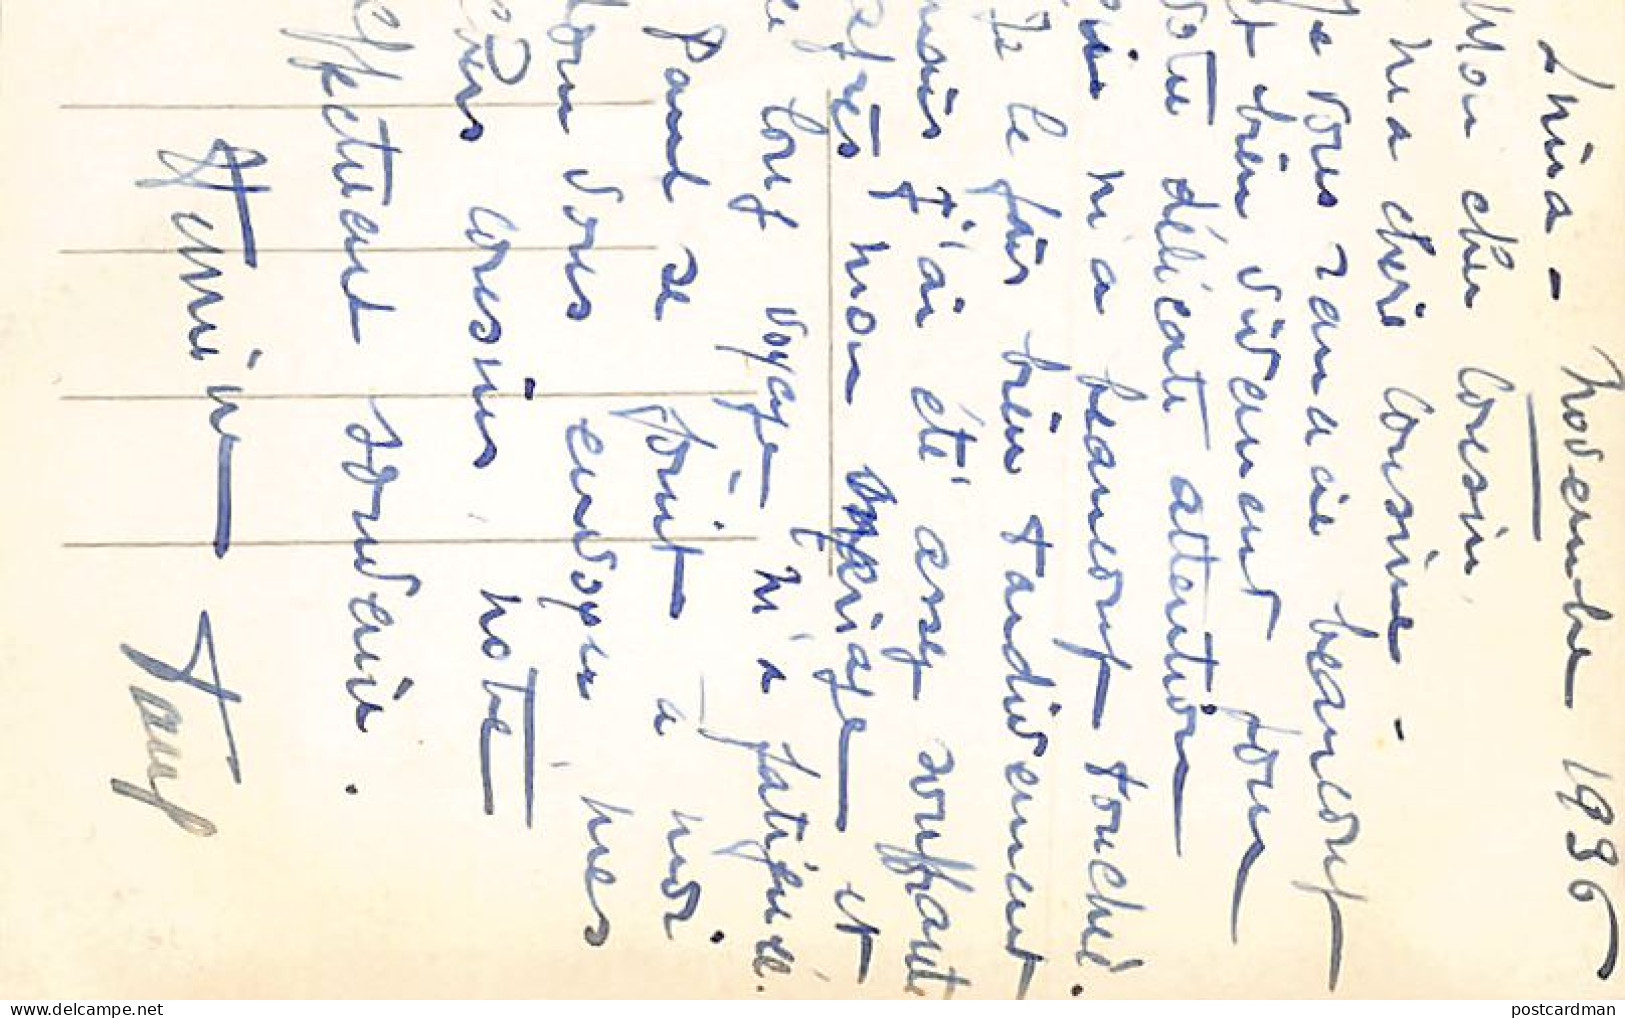 Lima - Novembre 1936
Mon cher Cousin,
Ma chère Cousine -
Je vous remercie beaucoup
et bien vivement pour
votre délicate attention
qui m'a beaucoup touché.
Je le fais bien tardivement
mais j'ai été assez souffrante
après mon mariage et
le long voyage m'a fatiguée.
Paul se joint à moi
pour vous envoyer mes
chers cousins notre
affectueux souvenir.
Paul
postcardman